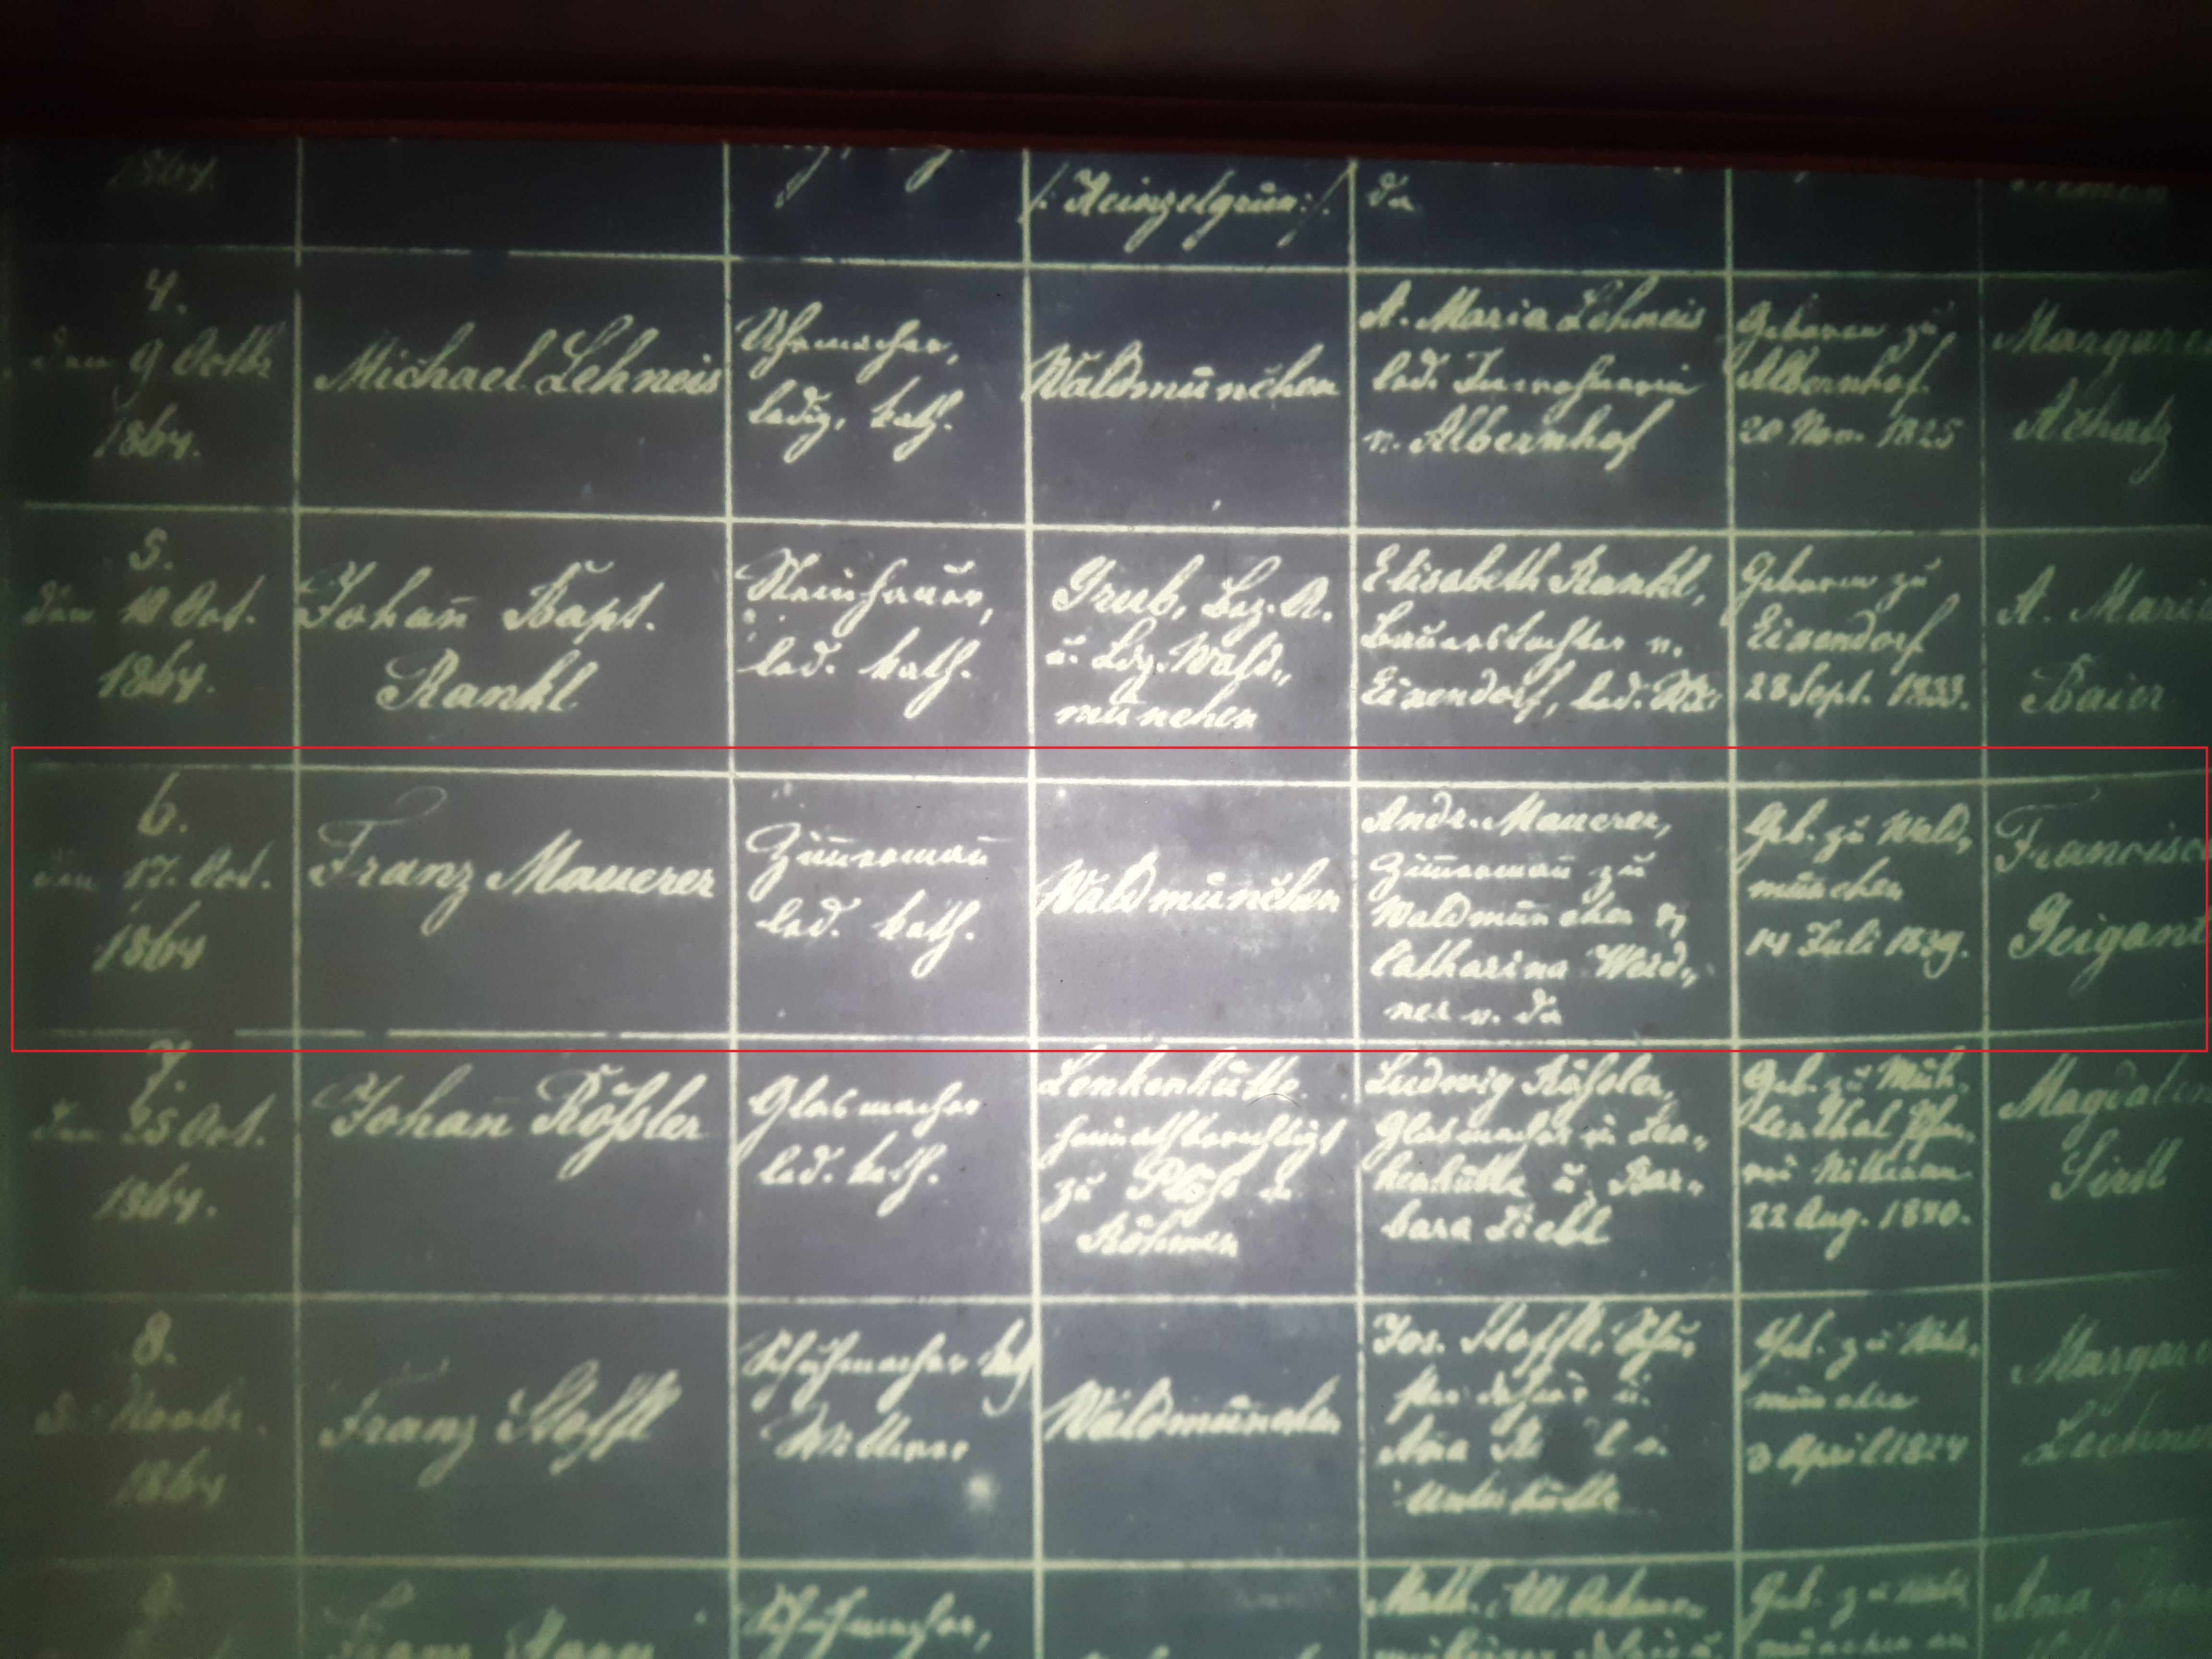 1864.
/: Heinzelgrün :/.
da
4.
den 9 Octbr
1864.
Michael Lehneis
Uhrmacher,
ledig, kath.
Waldmünchen
A. Maria Lehneis
led. Inwohnerin
v. Albernhof
Geboren zu
Albernhof
20 Nov. 1825
Margare
Achatz
5.
den 10 Oct.
1864.
Johañ Bapt.
Rankl
Steinhauer,
led. kath.
Grub, Bez. A.
u. Ldg. Wald„
münchen
Elisabeth Rankl,
Bauerstochter v.
Eixendorf, led.
Geboren zu
Eixendorf
28 Sept. 1833.
A. Maria
Baier
6.
den 17. Oct.
1864
Franz Mauerer
Zim̄ermañ
led. kath.
Waldmünchen
Andr. Mauerer,
Zim̄ermañ zu
Waldmünchen &
Catharina Weid„
ner v. da
Geb. zu Wald„
münchen
14 Juli 1839.
Francisc
Geigant
7.
den 25 Oct.
1864.
Johañ Rößler
Glasmacher
led. kath.
Lenkenhütte
heimathberechtigt
zu Plöß in
Böhmen
Ludwig Rößler,
Glasmacher in Len„
kenhütte u. Bar„
bara Liebl
Geb. zu Müh„
lenthal Pfar„
rei Nittenau
22 Aug. 1830.
Magdalen
Sirtl
8.
Novbr.
1864
Franz Stoffl
Schuhmacher kath
Wittwer
Waldmünchen
Jos. Stoffl, Schu„
ster dahier u.
Ana
Unterhütte
Geb. zu Wald„
münchen
3 April 1824
Margar
Lechne
9.
Franz
Schuhmacher,
Math.
Geb. zu Wald
münchen
Ana